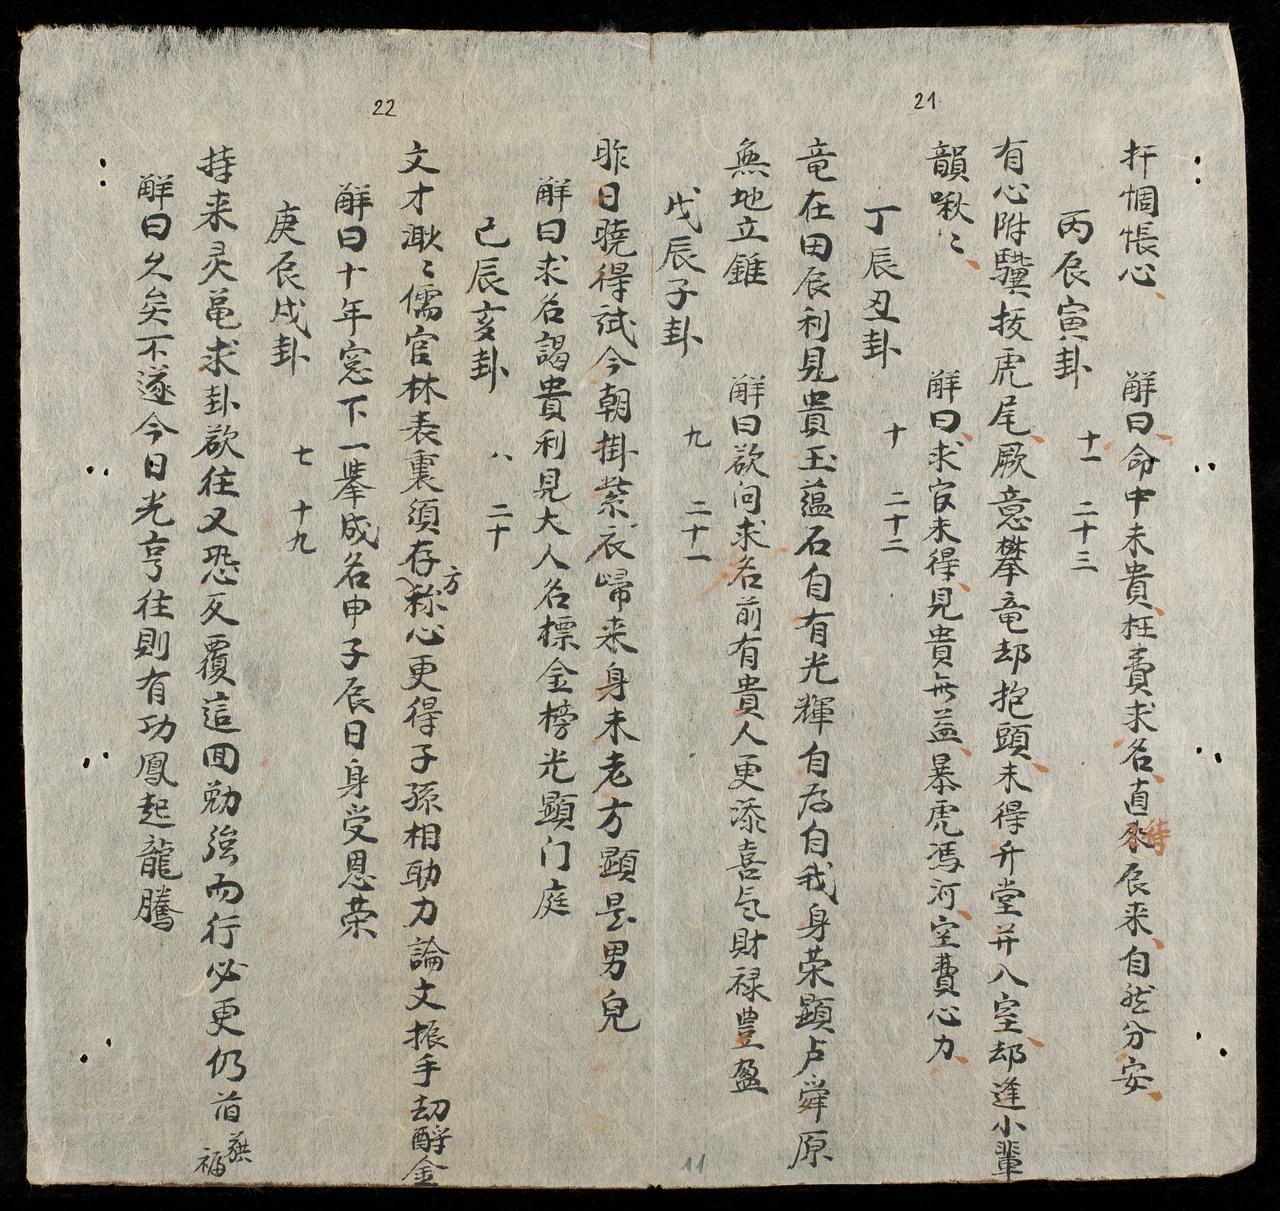 21
扞惆悵心　解曰命中未貴枉費求名直待辰来自然分安
丙辰寅卦　十一　二十三
有心附驥扳虎尾厥意攀竜却抱頭未得升堂并入室却逢小輩
韻啾〻　解曰求官未得見貴無益暴虎馮河空費心力
丁辰丑卦　十　二十二
竜在田辰利見貴玉蕴石自有光輝自為自我身荣顕占舜原
無地立錐　解曰欲问求名前有貴人更添喜气財禄豊盈
戊辰子卦　九　二十一
11
22
昨日暁得試今朝掛紫衣歸来身未老方顕是男兒
解曰求名謁貴利見大人名標金榜光顕门庭
己辰亥卦　八　二十
文才湫〻儒官林表裏須存方称心更得子孫相助力論文振手刧酹金
解曰十年窓下一挙成名申子辰日身受恩荣
庚辰戌卦　七　十九
持来灵亀求卦欲往又恐反覆這囬勉強而行必更仍旨福
解曰久矣不遂今日光亨往則有功鳳起龍騰